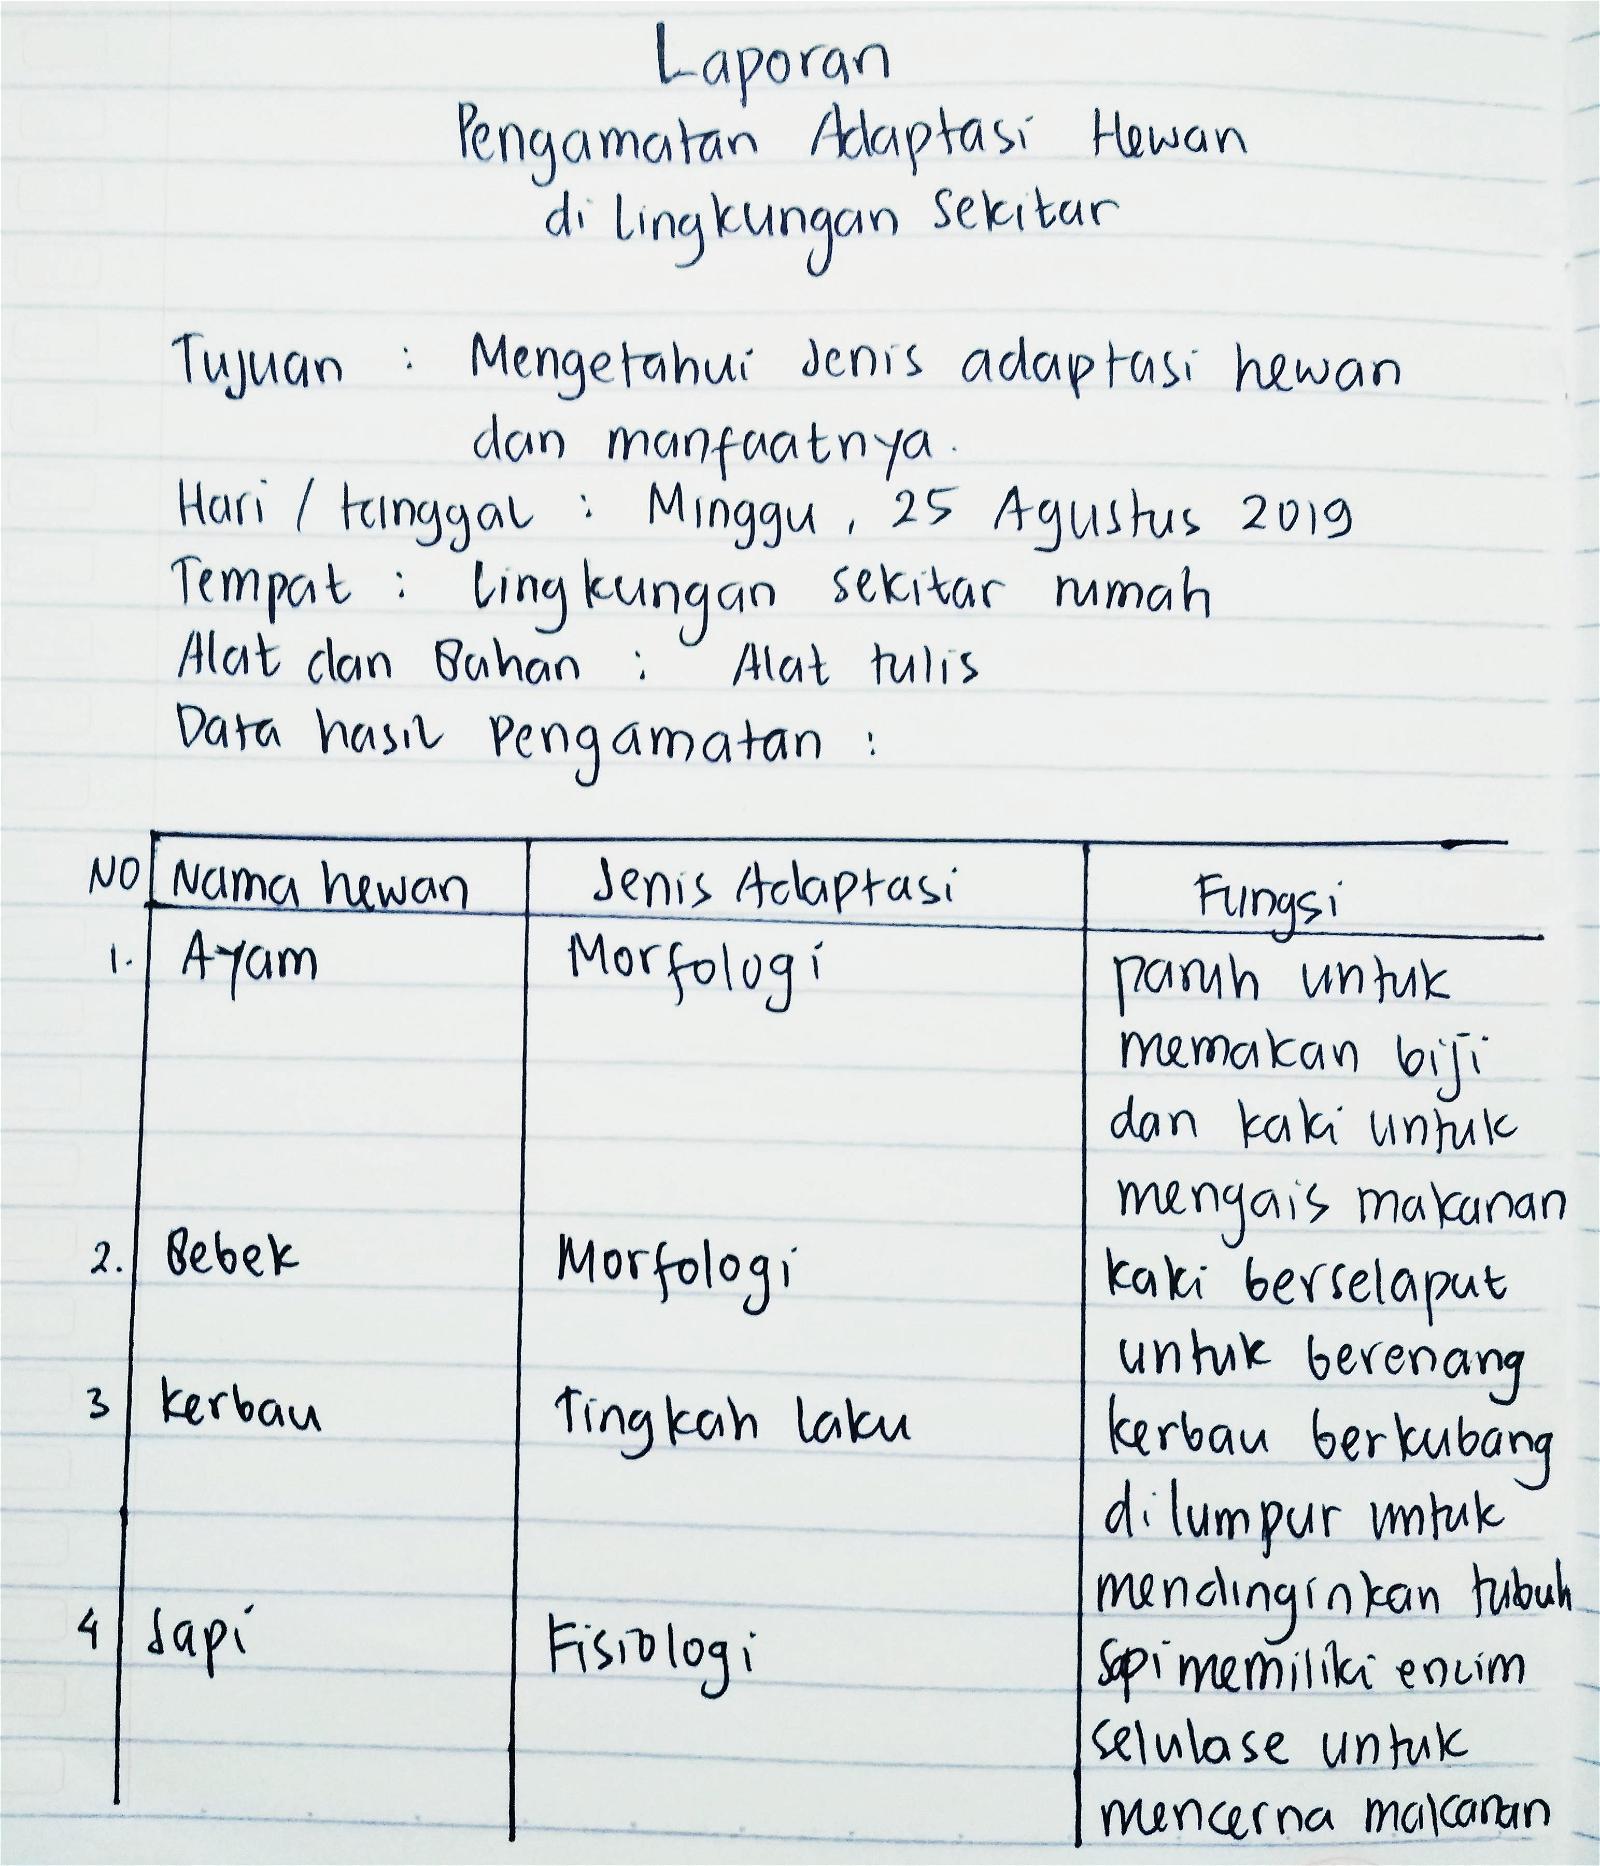 Laporan
Pengamatan Adaptasi Hewan
di lingkungan sekitar
Tujuan : Mengetahui Jenis adaptasi hewan
dan manfaatnya.
Hari / tanggal : Minggu, 25 Agustus 2019
Tempat : lingkungan sekitar rumah
Alat dan Bahan : Alat tulis
Data hasil Pengamatan :
NO Nama hewan Jenis Adaptasi Fungsi
1. Ayam Morfologi paruh untuk
memakan biji
dan kaki untuk
mengais makanan
2. Bebek Morfologi kaki berselaput
untuk berenang
3 kerbau Tingkah laku kerbau berkubang
di lumpur untuk
mendinginkan tubuh
4 Sapi Fisiologi sapi memiliki enzim
selulase untuk
mencerna makanan